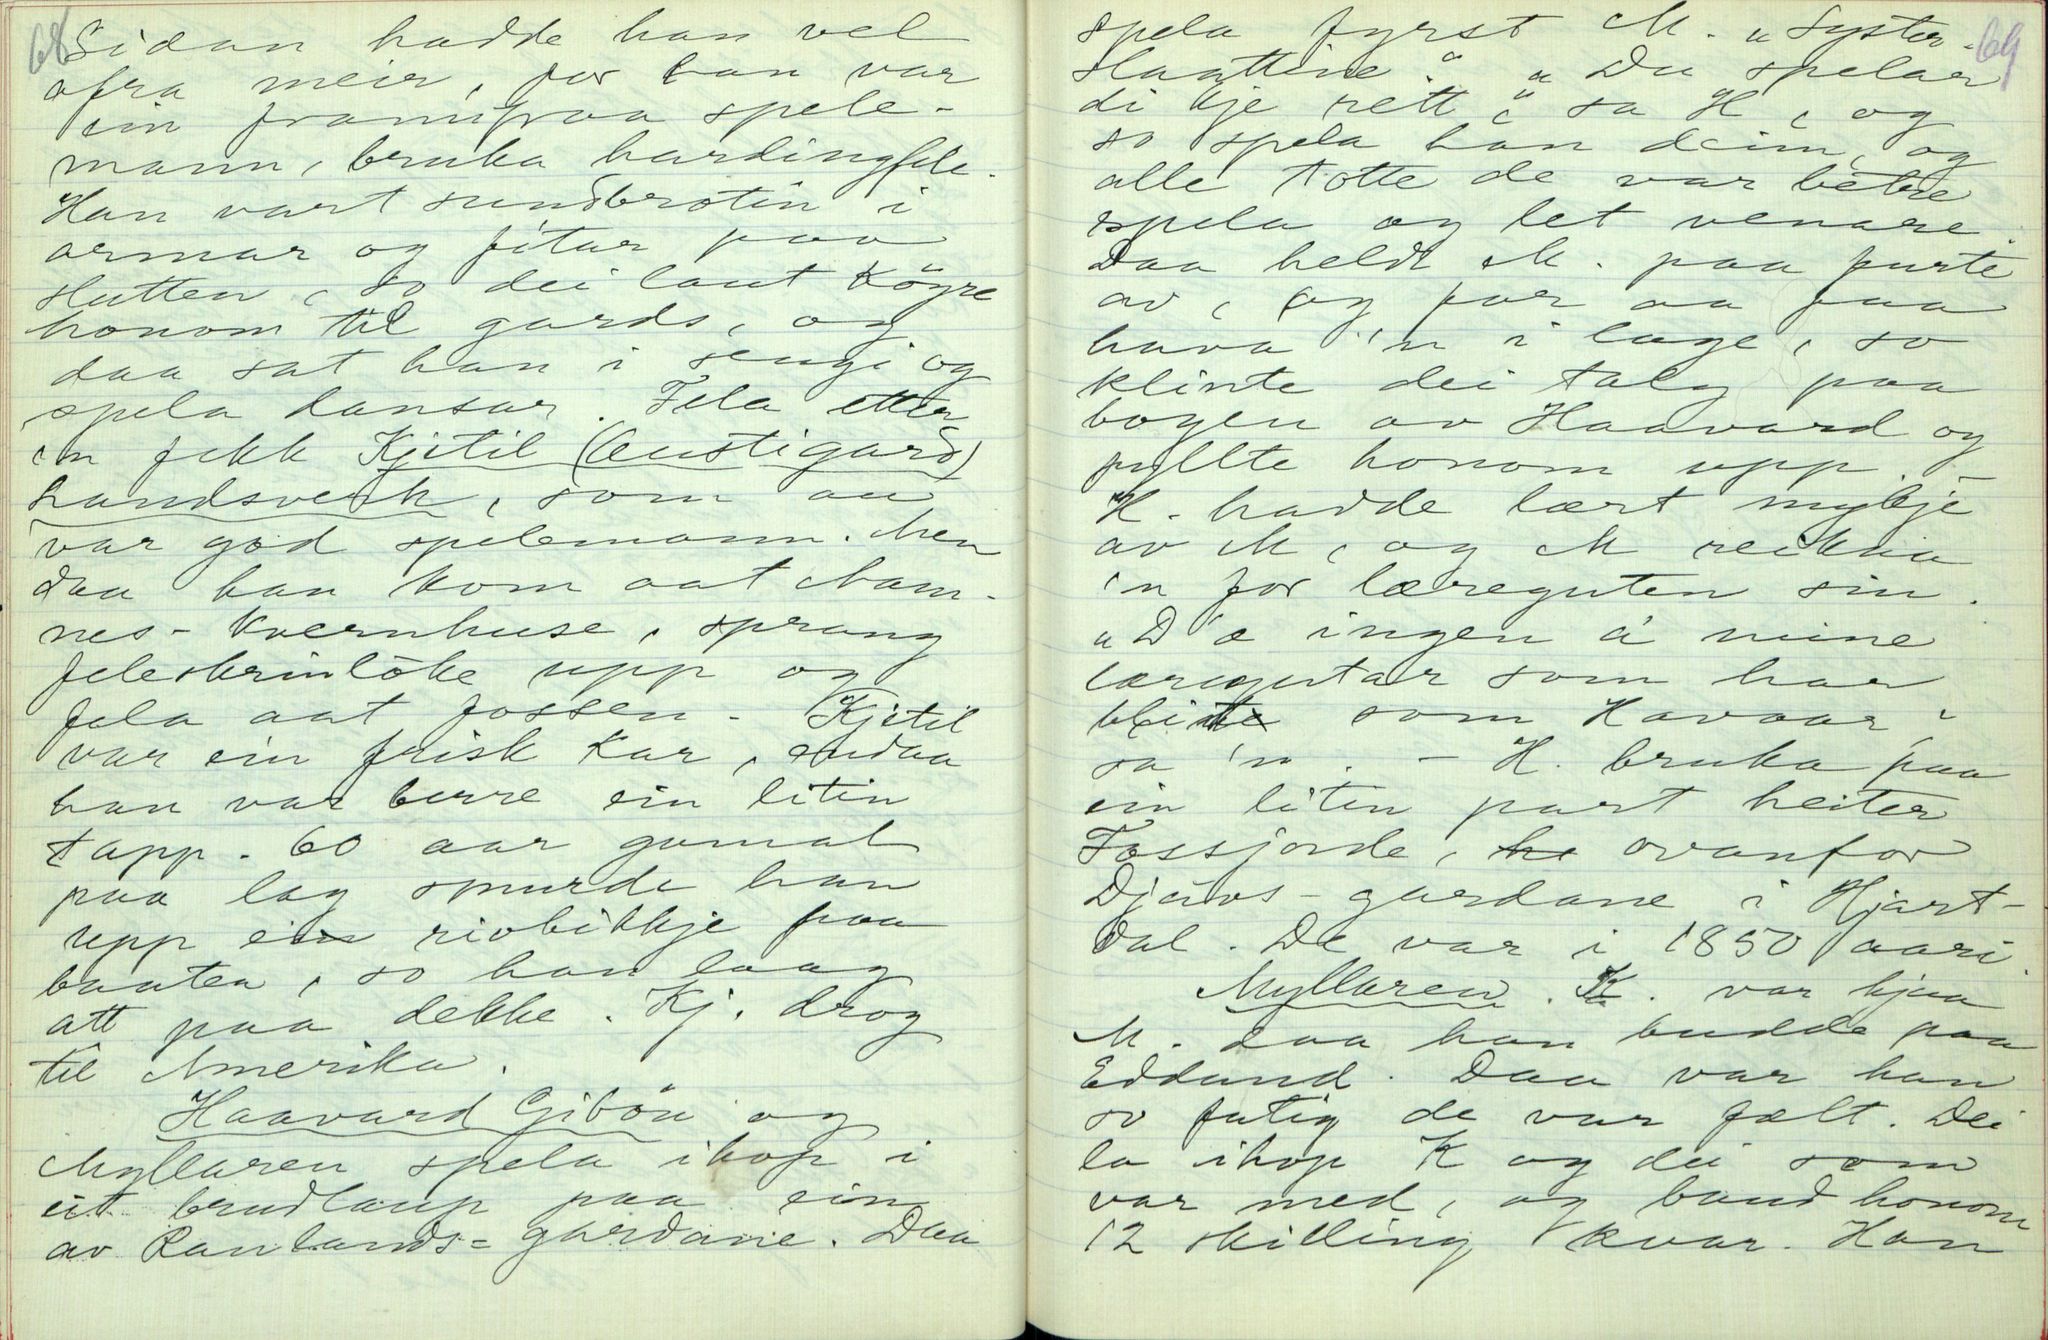 68
Sidan hadde han vel
ofra meir, for han var
ein framifraa spele-
mann, bruka hardingfele.
Han vart sundbrotin i
armar og fötar paa
slutten, so dei laut Kögre
honom til gards, og
daa sat han i sengi og
spela dansar. Fela etter
'n fekk Kjetil (Austigard)
Landsverk, som au
var god spelemann. Men
daa han kom aat Nam-
nes-Kvernhuse, sprang
feleskrinlöke upp og
fela aat fossen. Kjetil
var ein frisk Kar, endaa
han var berre ein litin
tapp. 60 aar gamal
paa lag spurde han
upp ein rivbikkje paa
baaten, so han laag
att paa dekke. Kj. drog
til Amerika.
Haavard Giböu og
Myllaren spela ihop i
eit brudlaup paa ein
av Raulands-gardane. Daa
69
spela fyrst M. "Syster-
slaattine". "Du spelar
di kje rett", sa H, og
so spela han deim, og
alle totte de var betre
spela og let venare.
Daa heldt M. paa furte
av, og for aa faa
hava 'n i lage, so
klinte dei talg paa
bogen av Haavard og
fyllte honom upp. -
H. hadde lært mykje
av M, og M reikna
'n for læreguten sin.
"D'æ ingen á mine
læregutar som har
som Havaar",
sa 'n. - H. bruka paa
ein liten part heiter
Fossjorde, ovanfor
Djuvs-gardane i Hjart-
dal. De var i 1850 aari.
Myllaren. K. var hjaa
M. daa han budde paa
Eddand. Daa var han
so fatig de var fælt. Dei
la ihop K og dei som
var med, og baud honom
12 skilling kvar. Han